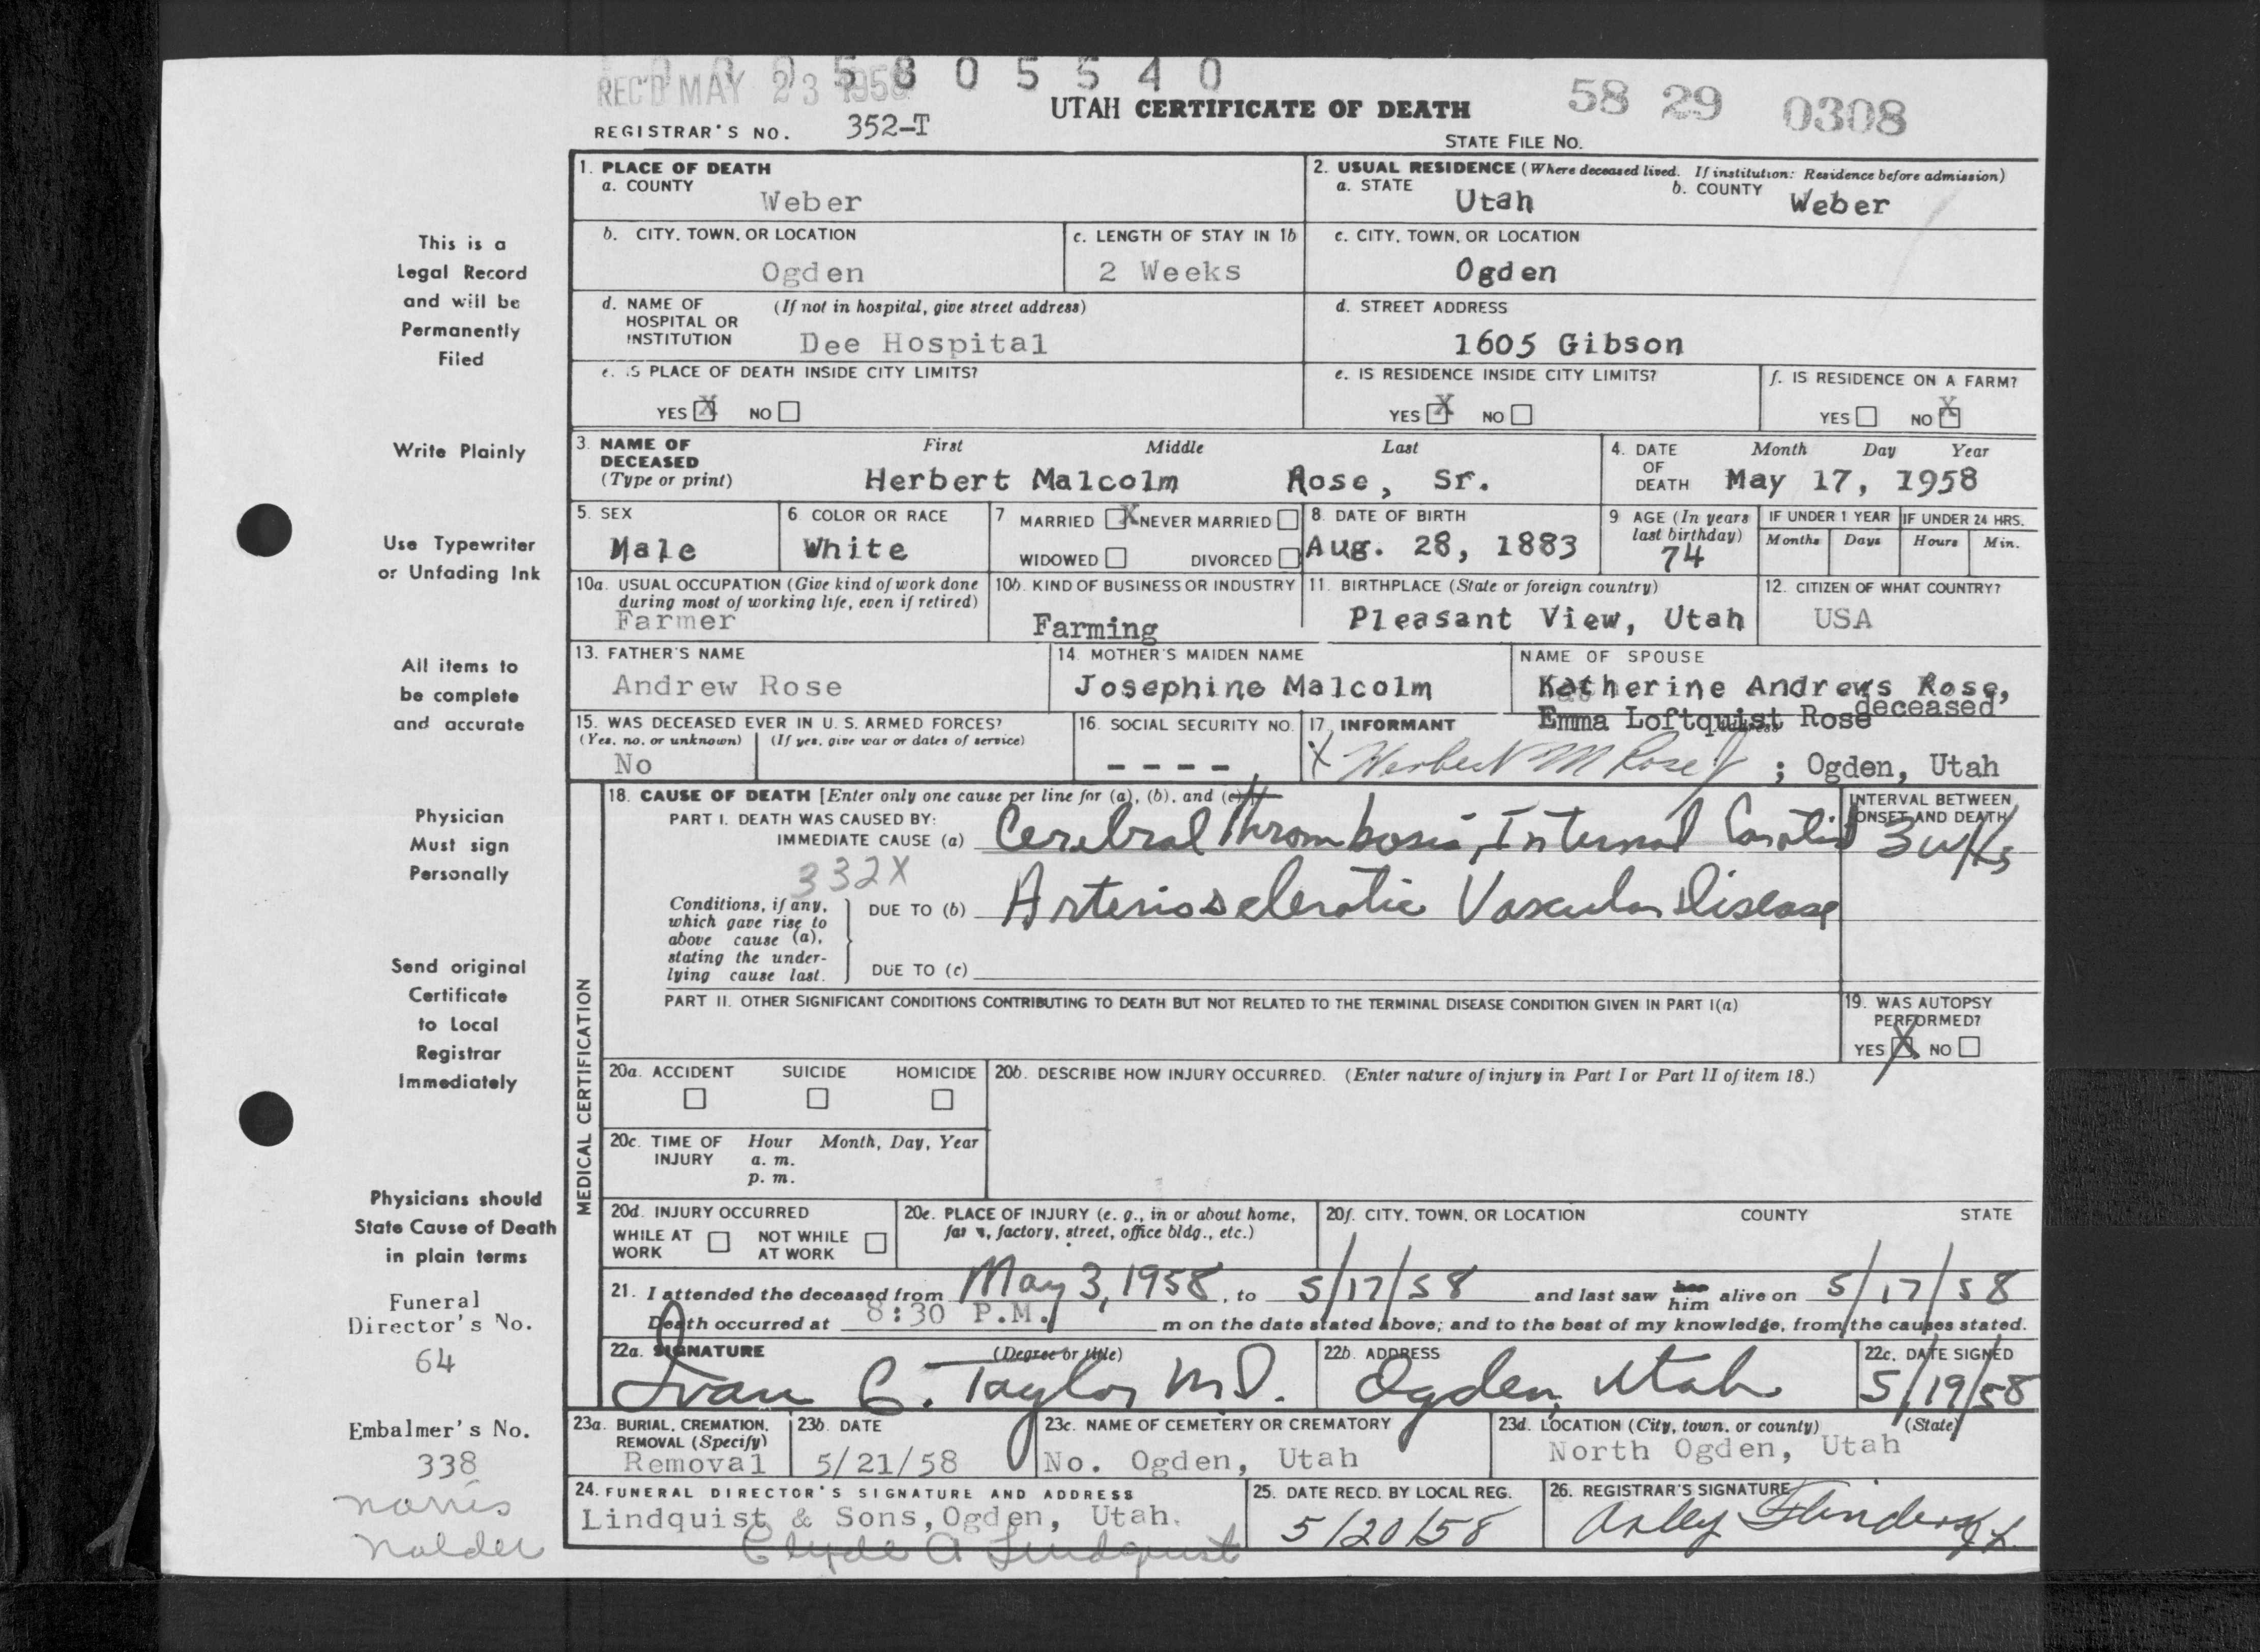 0 0 2 5 8 0 5 5 4 0
REC'D MAY 23 1958
58 29 0308
UTAH CERTIFICATE OF DEATH
REGISTRAR'S NO. 352-T
STATE FILE NO.
This is a
Legal Record
and will be
Permanently
Filed
Write Plainly
Use Typewriter
or Unfading Ink
All items to
be complete
and accurate
Physician
Must sign
Personally
Send original
Certificate
to Local
Registrar
Immediately
Physicians should
State Cause of Death
in plain terms
Funeral
Director's No.
64
Embalmer's No.
338
Norris
Nalder
1. PLACE OF DEATH
a. COUNTY
Weber
2. USUAL RESIDENCE (Where deceased lived. If institution: Residence before admission)
a. STATE Utah b. COUNTY Weber
b. CITY, TOWN, OR LOCATION
Ogden
c. LENGTH OF STAY IN 1b
2 Weeks
c. CITY, TOWN, OR LOCATION
Ogden
d. NAME OF HOSPITAL OR INSTITUTION (If not in hospital, give street address)
Dee Hospital
d. STREET ADDRESS
1605 Gibson
e. IS PLACE OF DEATH INSIDE CITY LIMITS?
YES X NO
e. IS RESIDENCE INSIDE CITY LIMITS?
YES X NO
f. IS RESIDENCE ON A FARM?
YES NO X
3. NAME OF DECEASED (Type or print)
First Middle Last
Herbert Malcolm Rose, Sr.
4. DATE OF DEATH Month Day Year
May 17, 1958
5. SEX
Male
6. COLOR OR RACE
White
7 MARRIED X NEVER MARRIED
WIDOWED DIVORCED
8. DATE OF BIRTH
Aug. 28, 1883
9 AGE (In years last birthday)
74
IF UNDER 1 YEAR IF UNDER 24 HRS.
Months Days Hours Min.
10a. USUAL OCCUPATION (Give kind of work done during most of working life, even if retired)
Farmer
10b. KIND OF BUSINESS OR INDUSTRY
Farming
11. BIRTHPLACE (State or foreign country)
Pleasant View, Utah
12. CITIZEN OF WHAT COUNTRY?
USA
13. FATHER'S NAME
Andrew Rose
14. MOTHER'S MAIDEN NAME
Josephine Malcolm
NAME OF SPOUSE
Katherine Andrews Rose,
deceased
Emma Loftquist Rose
15. WAS DECEASED EVER IN U. S. ARMED FORCES?
(Yes, no, or unknown) (If yes, give war or dates of service)
No
16. SOCIAL SECURITY NO.
- - - -
17. INFORMANT Address
X Herbert M Rose Jr ; Ogden, Utah
MEDICAL CERTIFICATION
18. CAUSE OF DEATH [Enter only one cause per line for (a), (b), and (c).]
INTERVAL BETWEEN ONSET AND DEATH
PART I. DEATH WAS CAUSED BY:
IMMEDIATE CAUSE (a) Cerebral Thrombosis, Internal Carotid 3 wks
332X
Conditions, if any, which gave rise to above cause (a), stating the underlying cause last.
DUE TO (b) Arteriosclerotic Vascular Disease
DUE TO (c)
PART II. OTHER SIGNIFICANT CONDITIONS CONTRIBUTING TO DEATH BUT NOT RELATED TO THE TERMINAL DISEASE CONDITION GIVEN IN PART I(a)
19. WAS AUTOPSY PERFORMED?
YES X NO
20a. ACCIDENT SUICIDE HOMICIDE
20b. DESCRIBE HOW INJURY OCCURRED. (Enter nature of injury in Part I or Part II of item 18.)
20c. TIME OF INJURY Hour Month, Day, Year
a. m.
p. m.
20d. INJURY OCCURRED
WHILE AT WORK NOT WHILE AT WORK
20e. PLACE OF INJURY (e. g., in or about home, farm, factory, street, office bldg., etc.)
20f. CITY, TOWN, OR LOCATION COUNTY STATE
21. I attended the deceased from May 3, 1958, to 5/17/58 and last saw her him alive on 5/17/58
Death occurred at 8:30 P.M. m on the date stated above; and to the best of my knowledge, from the causes stated.
22a. SIGNATURE (Degree or title)
Ivan C. Taylor M.D.
22b. ADDRESS
Ogden, Utah
22c. DATE SIGNED
5/19/58
23a. BURIAL, CREMATION, REMOVAL (Specify)
Removal
23b. DATE
5/21/58
23c. NAME OF CEMETERY OR CREMATORY
No. Ogden, Utah
23d. LOCATION (City, town, or county) (State)
North Ogden, Utah
24. FUNERAL DIRECTOR'S SIGNATURE AND ADDRESS
Lindquist & Sons, Ogden, Utah.
Clyde A Lindquist
25. DATE RECD. BY LOCAL REG.
5/20/58
26. REGISTRAR'S SIGNATURE
Arley Flinders